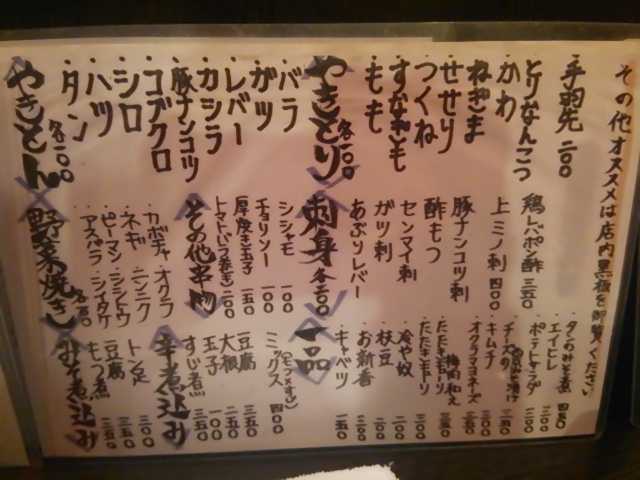 その他オススメは店内黒板を御覧ください
・手羽先 二〇〇
・とりなんこつ
・かわ
・ねぎま
・せせり
・つくね
・すなぎも
・もも
やきとり 各一〇〇
・バラ
・ガツ
・レバー
・カシラ
・豚ナンコツ
・コブクロ
・シロ
・ハツ
・タン
やきとん 各一〇〇
・鶏レバポン酢 三五〇
・上ミノ刺 四〇〇
・豚ナンコツ刺
・酢もつ
・センマイ刺
・ガツ刺
・あぶりレバー
刺身
・シシャモ 一〇〇
・チョリソー 一五〇
・厚焼き玉子 一五〇
・トマトバラ巻き 二〇〇
その他串物
・カボチャ・オクラ
・ネギ ・ニンニク
・ピーマン・シシトウ
・アスパラ・シイタケ
野菜焼き
・タンのみそ煮 四五〇
・エイヒレ 三〇〇
・ポテトサラダ 三〇〇
・チーズの
・キムチ 三〇〇
・オクラマヨネーズ
・たたききゅうり 梅肉和え
・たたききゅうり
・冷や奴
・枝豆 二〇〇
・お新香
・キャベツ 一五〇
一品
・ミックス 四〇〇
・豆腐 三五〇
・大根 二五〇
・玉子 一〇〇
・すじ煮 三五〇
辛煮込み
・トン足 三〇〇
・豆腐 三五〇
・もつ煮 三五〇
みそ煮込み